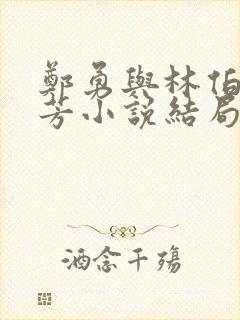 鄭勇與林伯
芳小說結局
酒念千殤